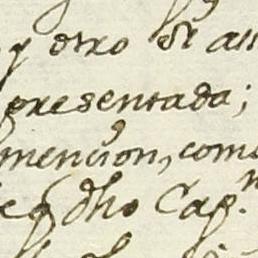 y otro si
presentada;
mencion, como
dho Cap.n